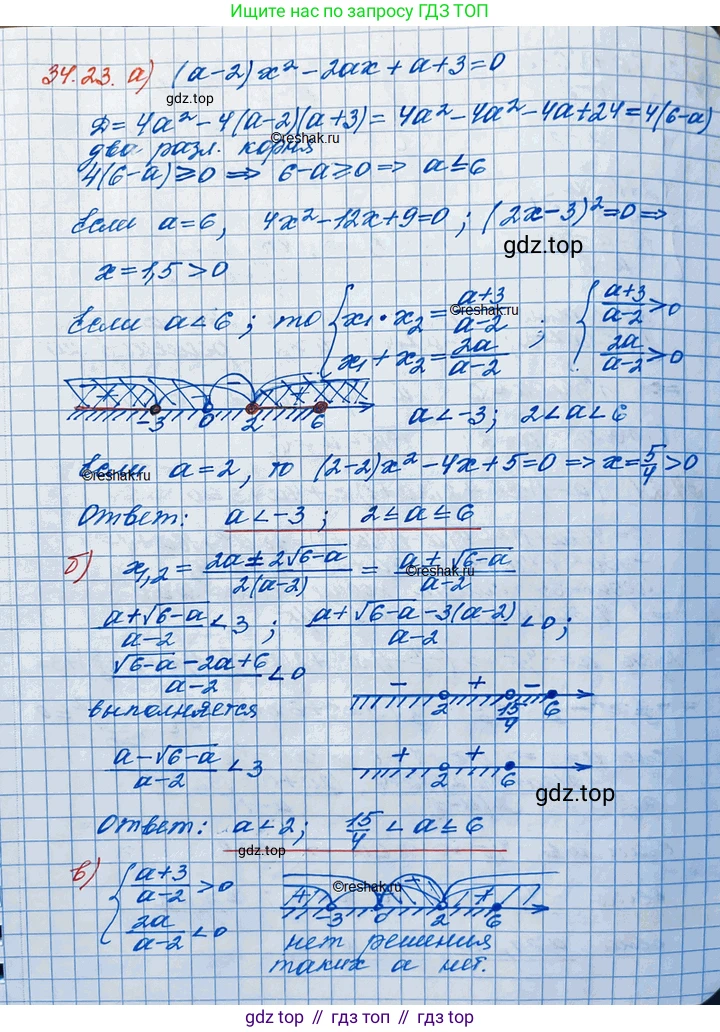 Ищите нас по запросу ГДЗ ТОП
34.23. а) (a-2)x² - 2ax + a+3=0
gdz.top
Д= 4a² - 4(a-2)(a+3) = 4a² - 4a² - 4a + 24 = 4(6-a)
©reshak.ru
два разл. корня
4(6-a) ≥ 0 ⇒ 6-a ≥ 0 ⇒ a ≤ 6
Если a=6, 4x² - 12x + 9 = 0 ; (2x-3)² = 0 ⇒
gdz.top
x = 1,5 > 0
Если a < 6 ; то { x₁ · x₂ = (a+3)/(a-2) ; { (a+3)/(a-2) > 0
©reshak.ru
x₁ + x₂ = 2a/(a-2) 2a/(a-2) > 0
+ - - +
-3 0 2 6 a < -3; 2 < a < 6
Если a = 2, то (2-2)x² - 4x + 5 = 0 ⇒ x = 5/4 > 0
©reshak.ru
Ответ: a < -3 ; 2 ≤ a ≤ 6
б) x₁,₂ = (2a ± 2√6-a)/(2(a-2)) = (a ± √6-a)/(a-2)
©reshak.ru
(a + √6-a)/(a-2) < 3 ; (a + √6-a - 3(a-2))/(a-2) < 0 ;
(√6-a - 2a + 6)/(a-2) < 0
- + -
2 15/4 6
выполняется
(a - √6-a)/(a-2) < 3
+ +
2 6
gdz.top
Ответ: a < 2; 15/4 < a ≤ 6
gdz.top
в) { (a+3)/(a-2) > 0
2a/(a-2) < 0
©reshak.ru
+ - +
-3 0 2 6
нет решения
таких a нет.
gdz.top // гдз топ // gdz.top